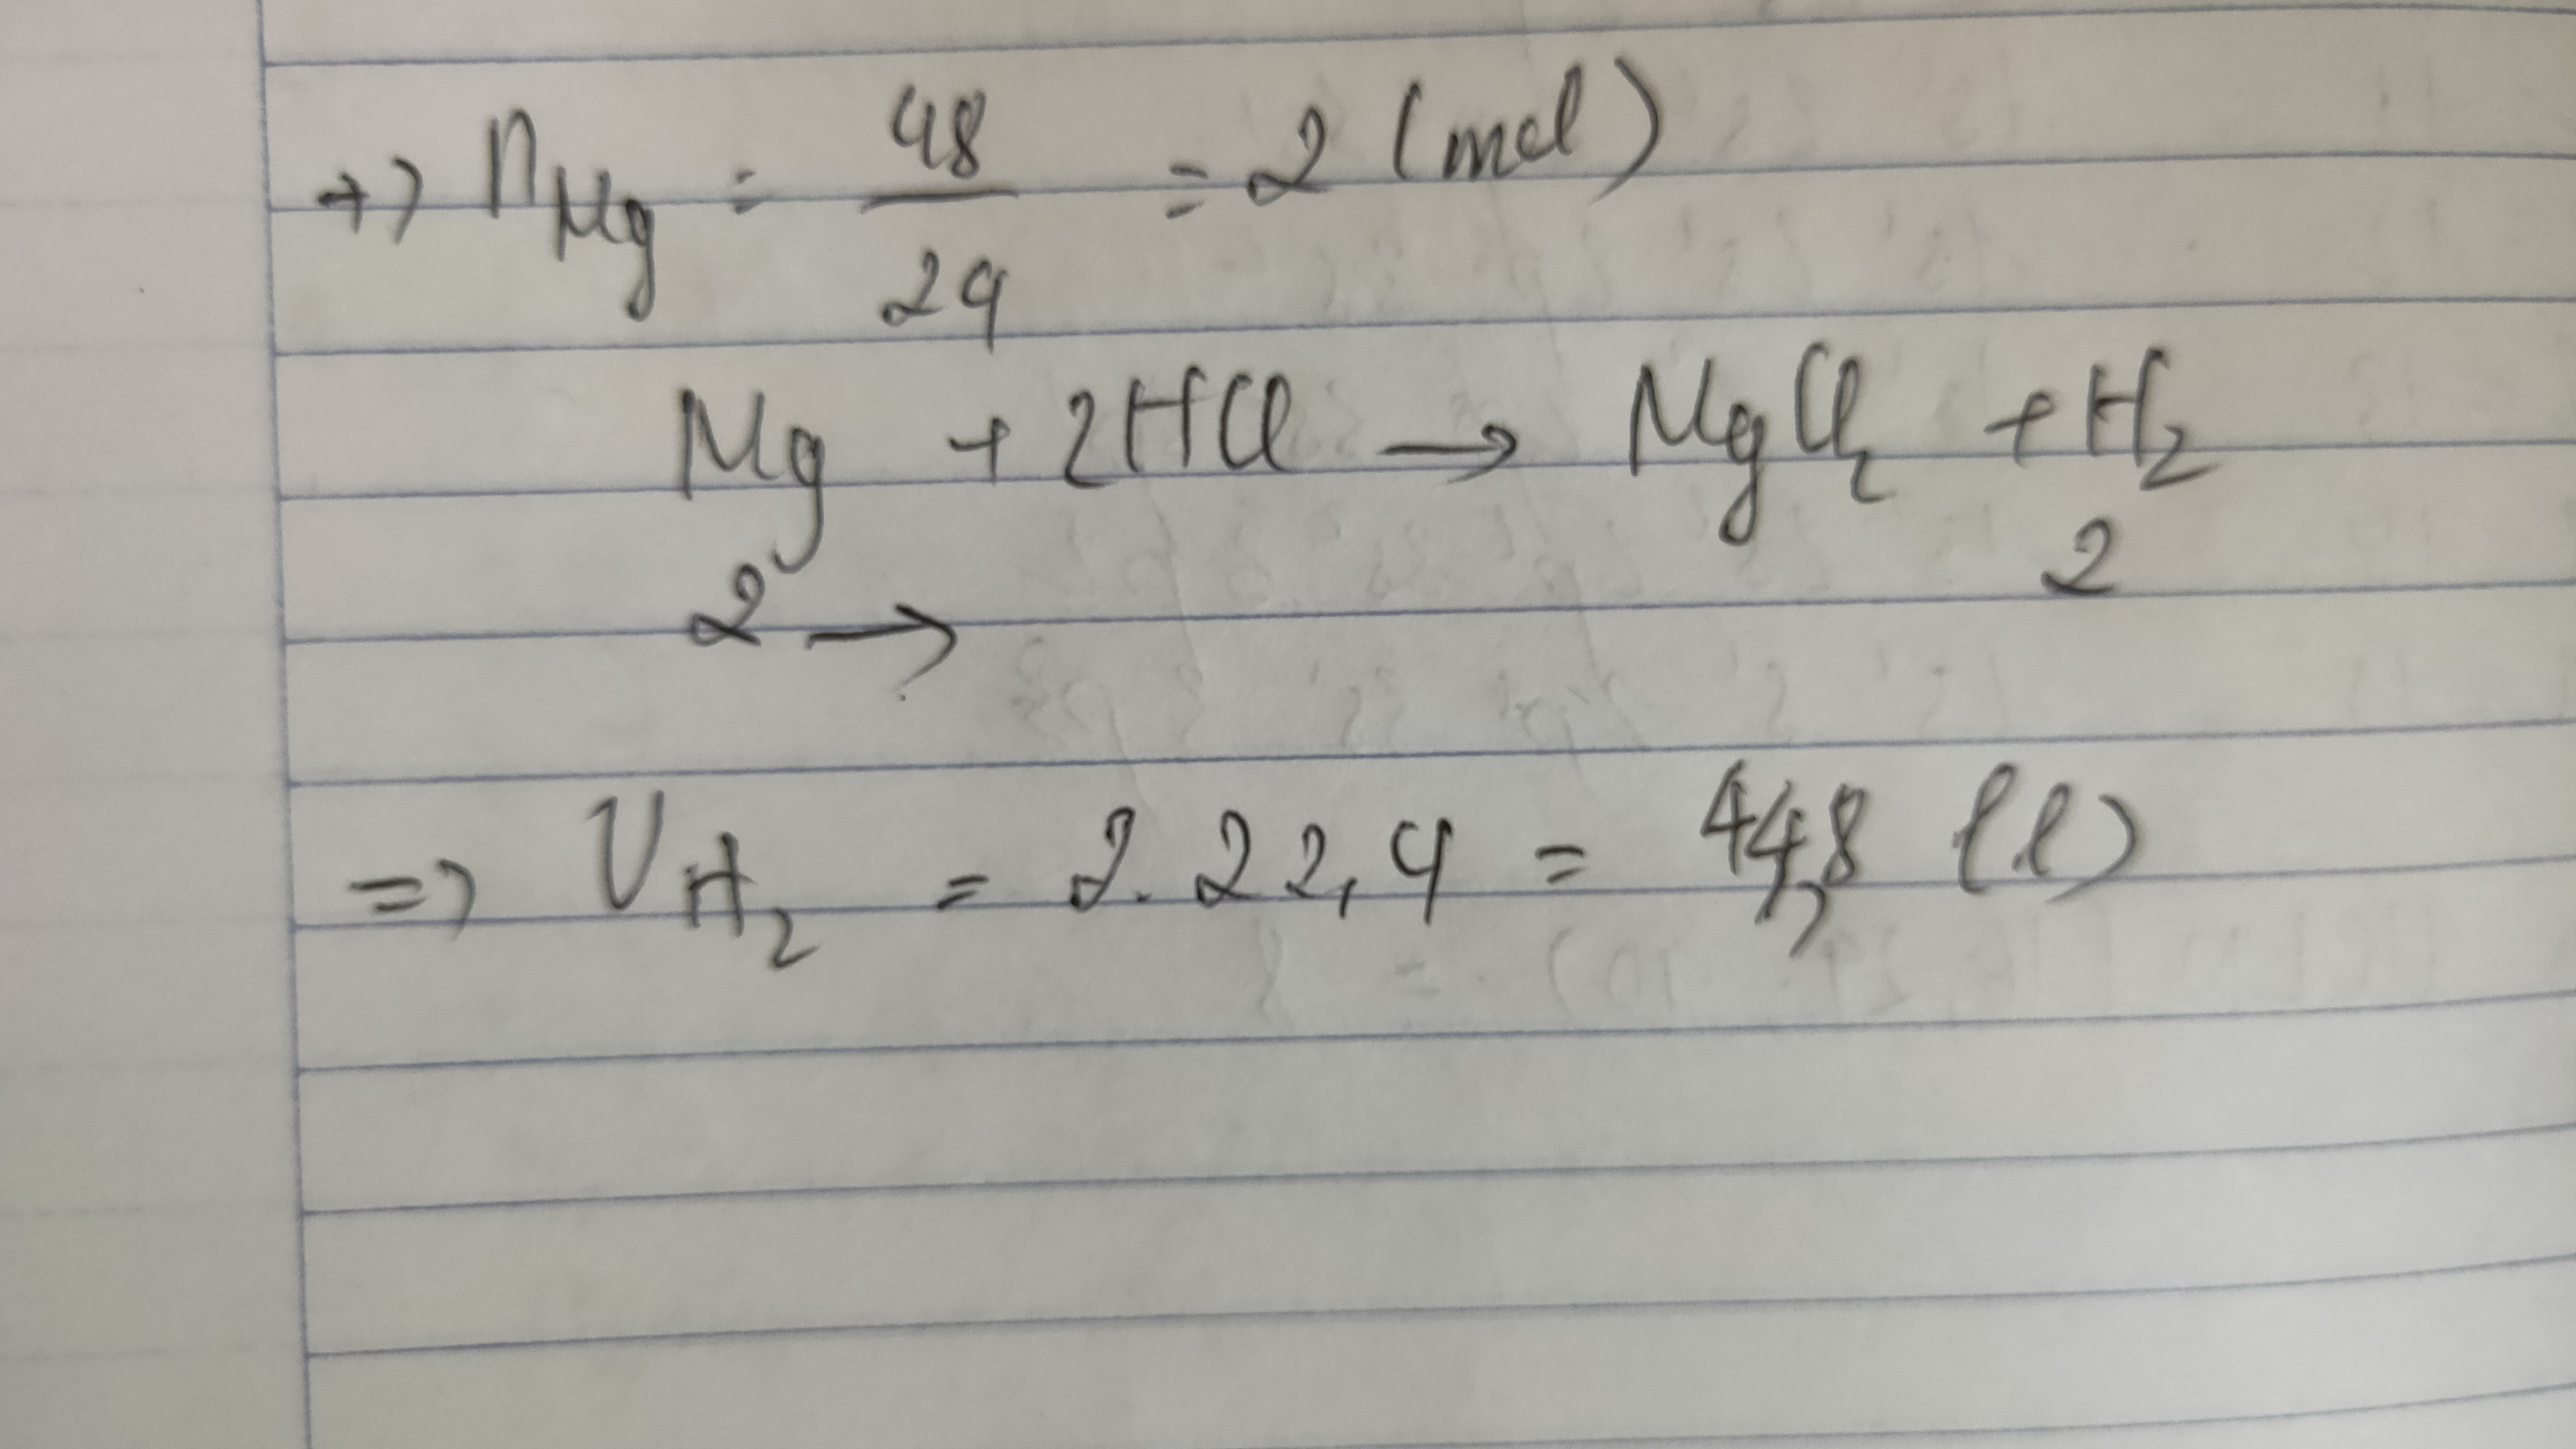 +) nMg = 48/24 = 2 (mol)
Mg + 2HCl → MgCl2 + H2
2 → 2
=) VH2 = 2.22,4 = 44,8 (l)